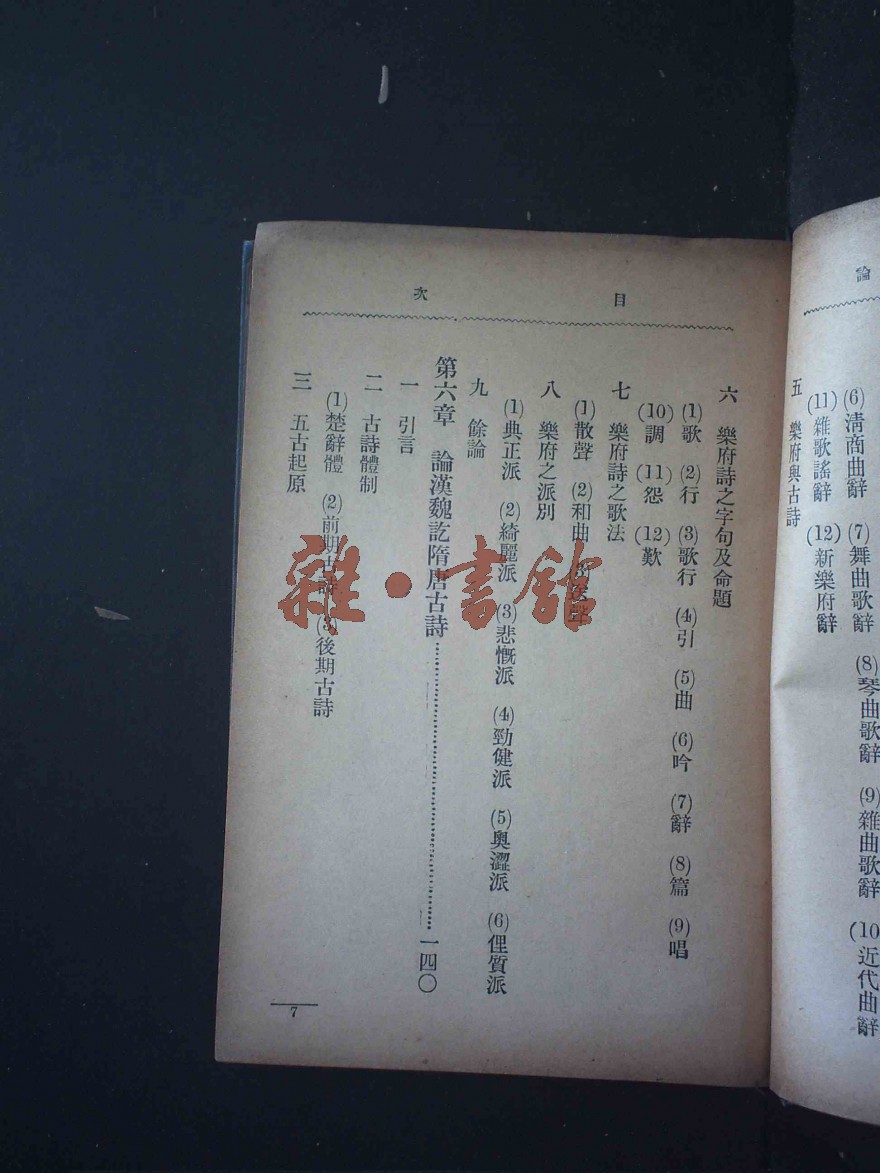 論
(6)清商曲辭 (7)舞曲歌辭 (8)琴曲歌辭 (9)雜曲歌辭 (10)近代曲辭
(11)雜歌謠辭 (12)新樂府辭
五 樂府與古詩
目 次
六 樂府詩之字句及命題
(1)歌 (2)行 (3)歌行 (4)引 (5)曲 (6)吟 (7)辭 (8)篇 (9)唱
(10)調 (11)怨 (12)歎
七 樂府詩之歌法
(1)散聲 (2)和曲 (3)送聲
八 樂府之派別
(1)典正派 (2)綺麗派 (3)悲慨派 (4)勁健派 (5)奧澀派 (6)俚質派
九 餘論
第六章 論漢魏訖隋唐古詩……一四〇
一 引言
二 古詩體制
(1)楚辭體 (2)前期古詩 (3)後期古詩
三 五古起原
7
雜·書館